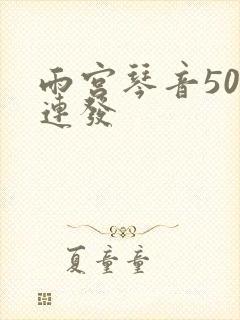 雨宮琴音50
連發
夏童童